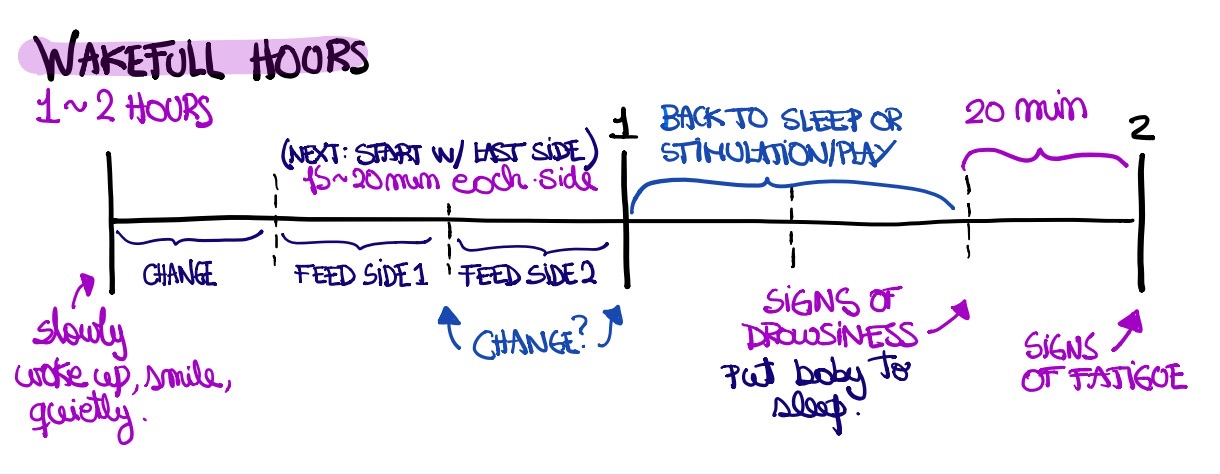 WAKEFULL HOURS
1 ~ 2 HOURS
(NEXT: START W/ LAST SIDE)
15 ~ 20 min each side
1
BACK TO SLEEP OR
STIMULATION/PLAY
20 min
2
CHANGE
FEED SIDE 1
FEED SIDE 2
CHANGE?
slowly
woke up, smile,
quietly.
SIGNS OF
DROWSINESS
Put baby to
sleep.
SIGNS
OF FATIGUE